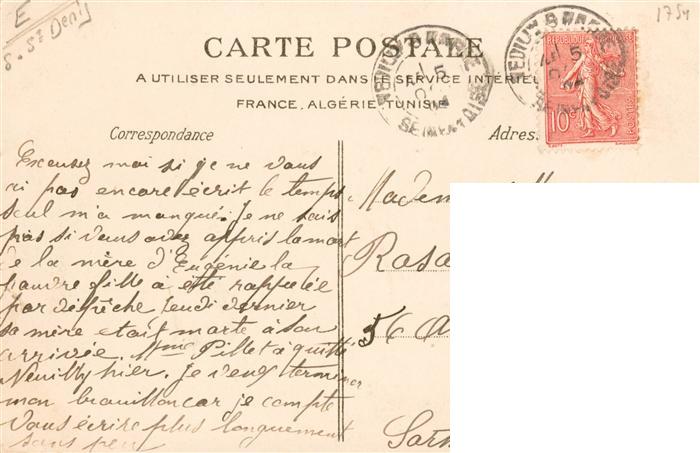 E
8. St Denis
1754
CARTE POSTALE
A UTILISER SEULEMENT DANS LE SERVICE INTÉRIEUR
FRANCE, ALGÉRIE, TUNISIE
REPUBLIQUE FRANÇAISE
10c
POSTES
Correspondance
Excusez moi si je ne vous
ai pas encore écrit le temps
seul m'a manqué. Je ne sais
pas si vous avez appris la mort
de la mère d'Eugénie la
pauvre fille à été rappelée
par dépêche Jeudi dernier
sa mère etait morte à son
arrivée. Mme Pillet à quitté
Neuilly hier. Je veux terminer
mon brouillon car je compte
vous écrire plus longuement
sans peu
Adres
Madem
Rosa
56 A